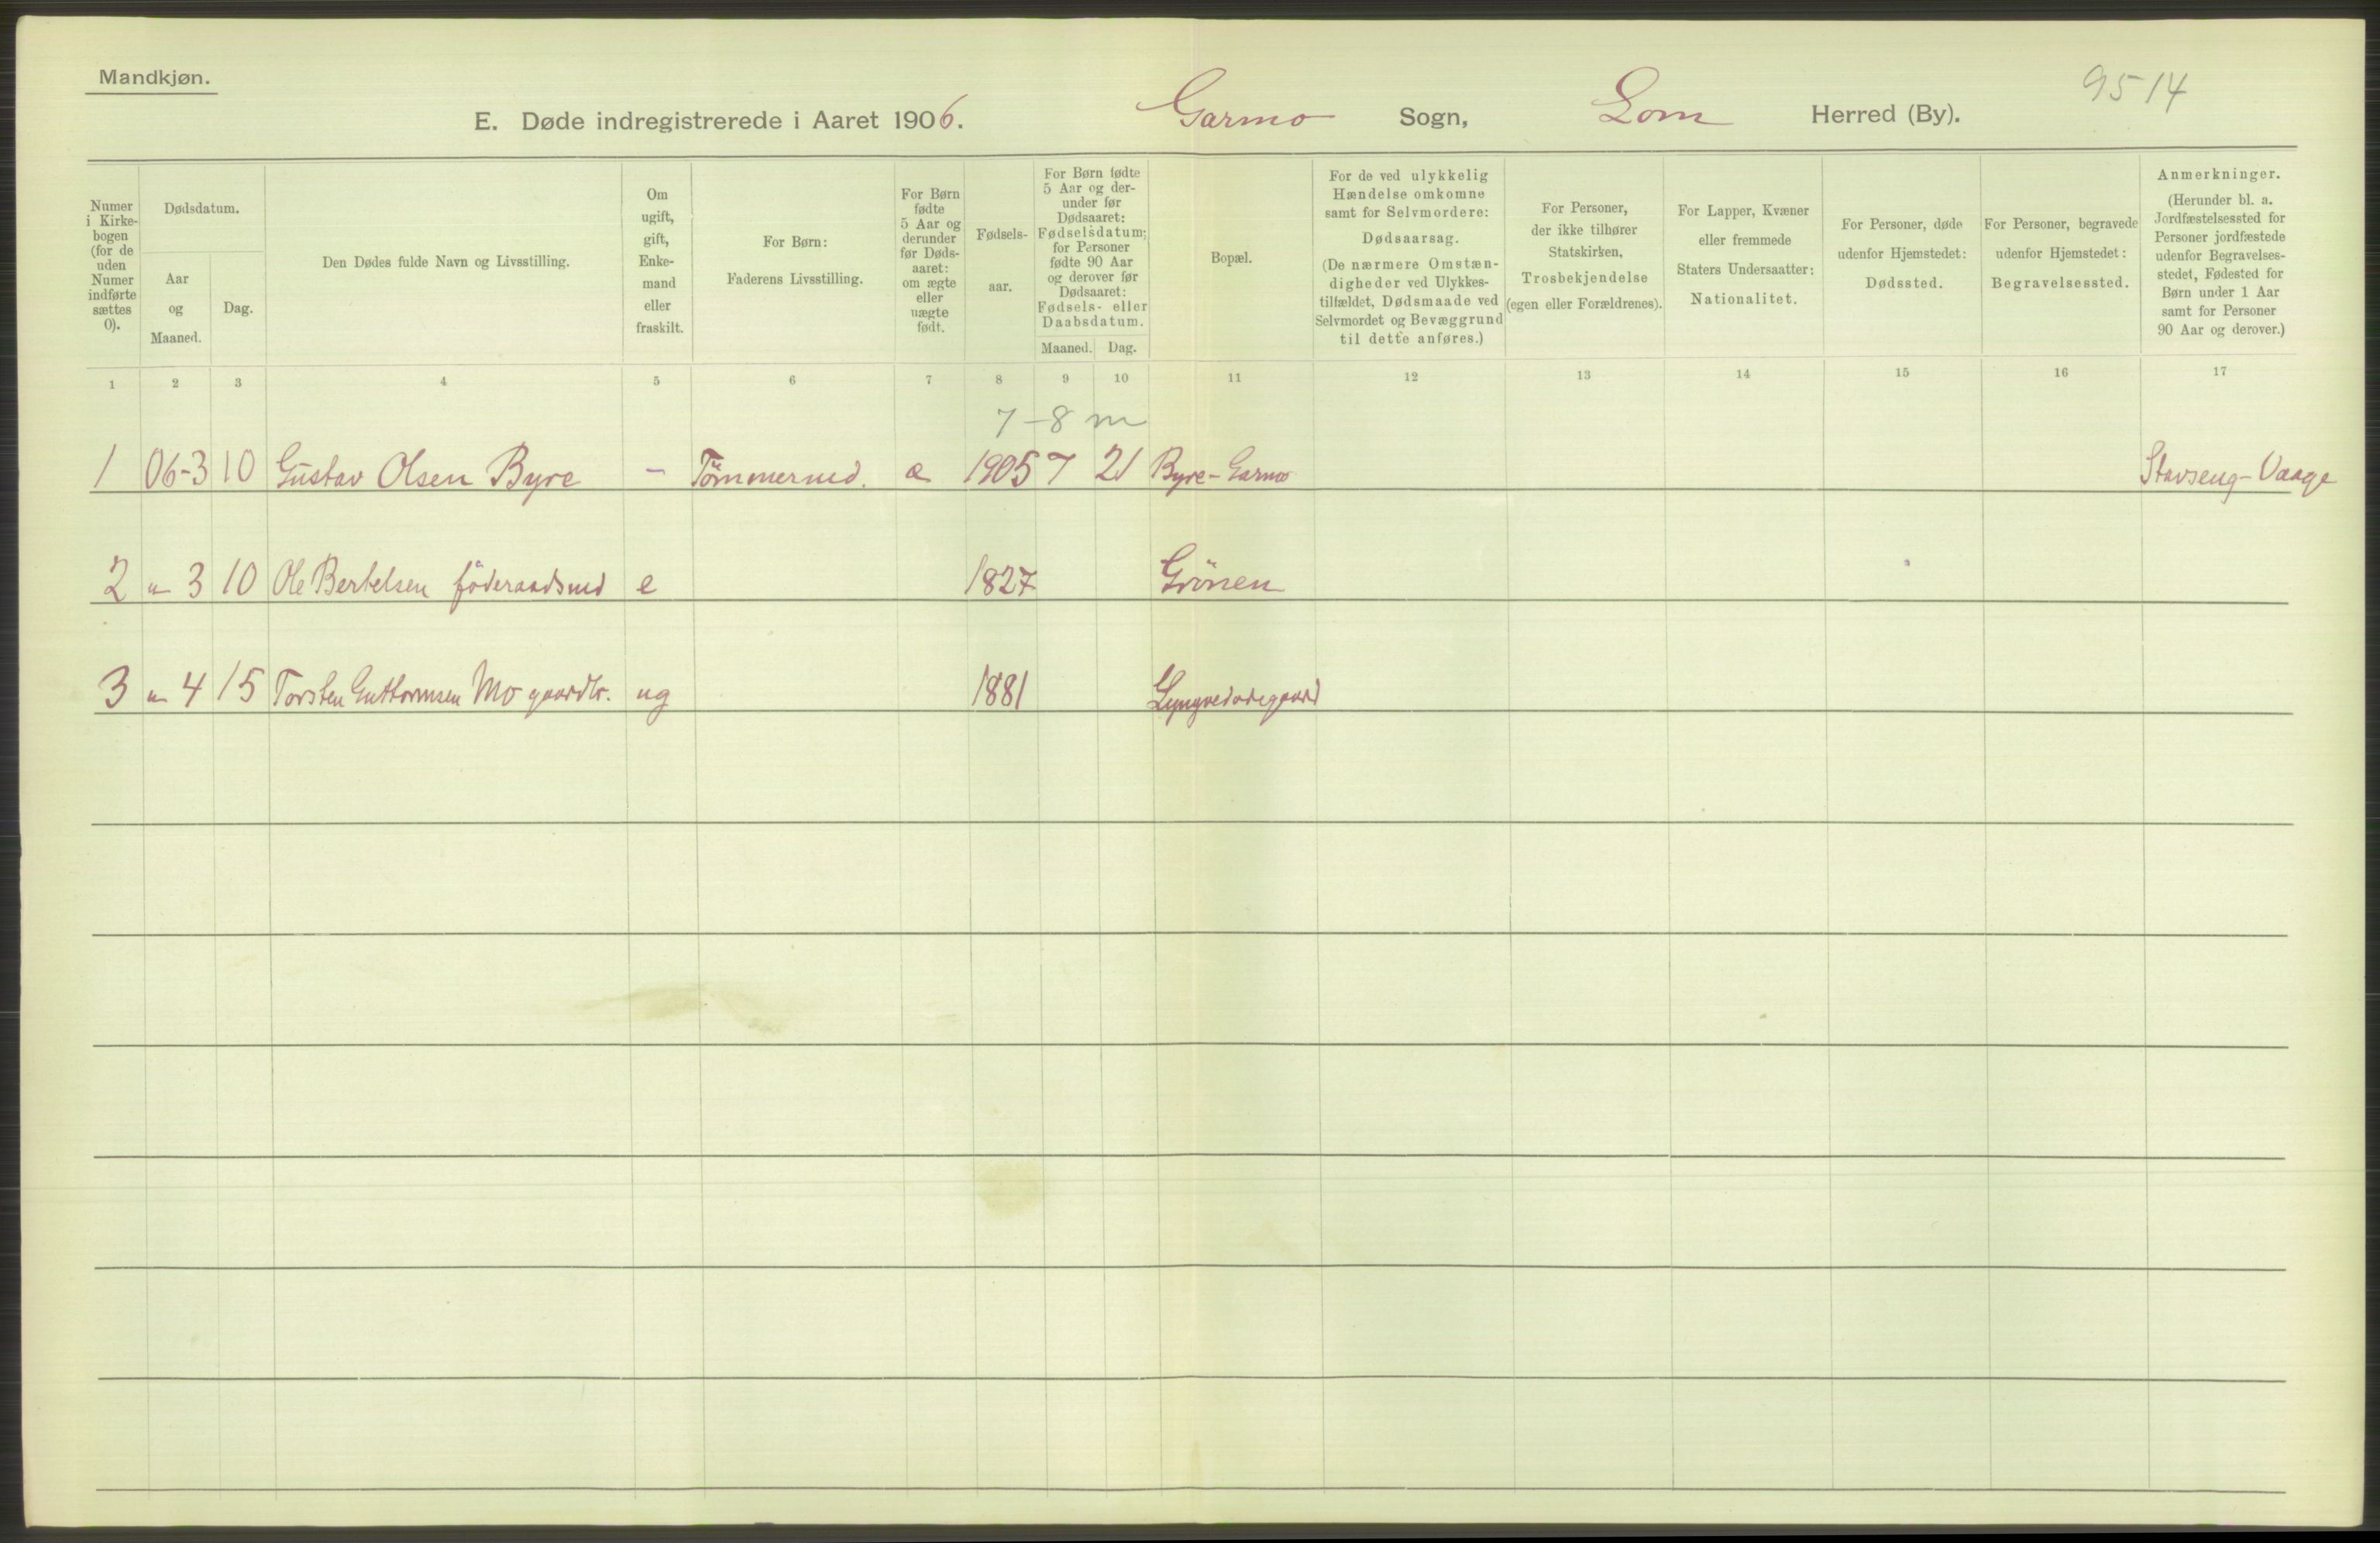 Mandkjøn.
9514
E. Døde indregistrerede i Aaret 1906. Garmo Sogn, Lom Herred (By).
Numer i Kirke-bogen (for de uden Numer indførte sættes 0).
Dødsdatum.
Aar og Maaned.
Dag.
Den Dødes fulde Navn og Livsstilling.
Om ugift, gift, Enke-mand eller fraskilt.
For Børn: Faderens Livsstilling.
For Børn fødte 5 Aar og derunder før Døds-aaret: om ægte eller uægte født.
Fødsels-aar.
For Børn fødte 5 Aar og der-under før Dødsaaret: Fødselsdatum; for Personer fødte 90 Aar og derover før Dødsaaret: Fødsels- eller Daabsdatum.
Maaned. Dag.
Bopæl.
For de ved ulykkelig Hændelse omkomne samt for Selvmordere: Dødsaarsag. (De nærmere Omstæn-digheder ved Ulykkes-tilfældet, Dødsmaade ved Selvmordet og Bevæggrund til dette anføres.)
For Personer, der ikke tilhører Statskirken, Trosbekjendelse (egen eller Forældrenes).
For Lapper, Kvæner eller fremmede Staters Undersaatter: Nationalitet.
For Personer, døde udenfor Hjemstedet: Dødssted.
For Personer, begravede udenfor Hjemstedet: Begravelsessted.
Anmerkninger. (Herunder bl. a. Jordfæstelsessted for Personer jordfæstede udenfor Begravelses-stedet, Fødested for Børn under 1 Aar samt for Personer 90 Aar og derover.)
1 2 3 4 5 6 7 8 9 10 11 12 13 14 15 16 17
7-8 m
1 06-3 10 Gustav Olsen Byre - Tömmermd. æ 1905 7 21 Byre-Garmo Stavseng-Vaage
2 " 3 10 Ole Bertelsen föderaadsmd e 1827 Grönen
3 " 4 15 Torsten Guttormsen Mo gaardbr. ug 1881